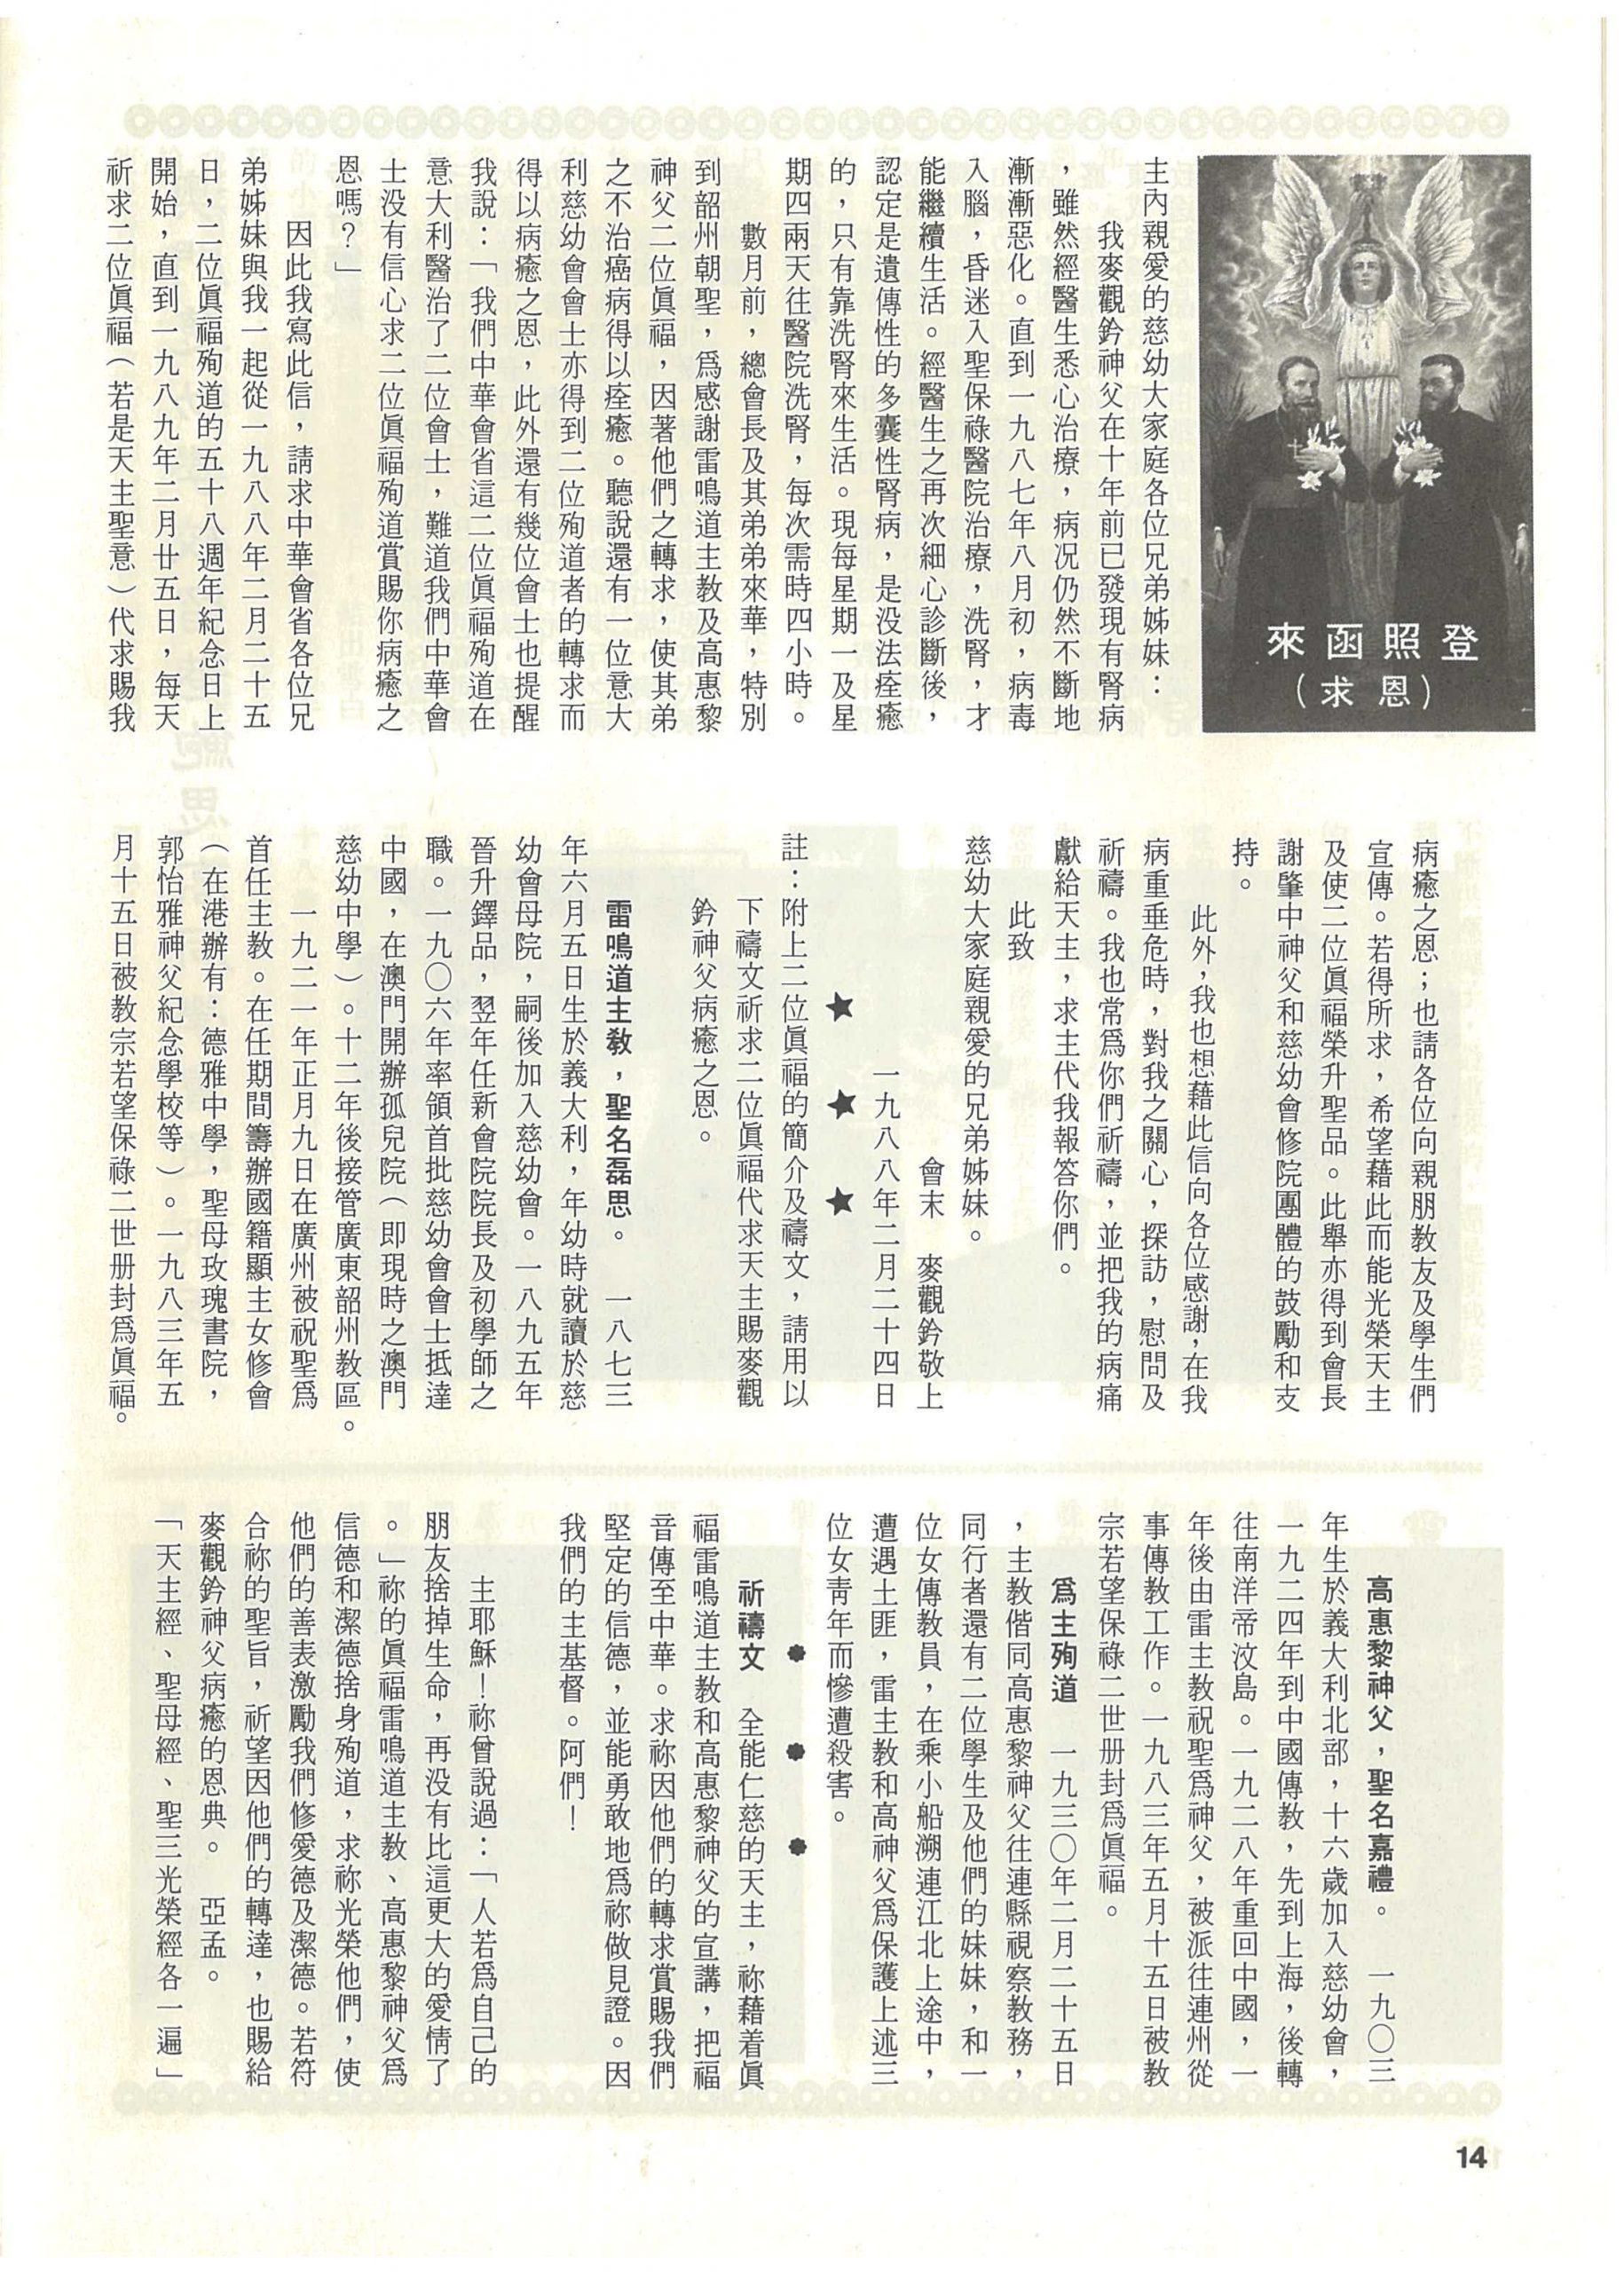 來函照登
（求恩）
主內親愛的慈幼大家庭各位兄弟姊妹：
我麥觀鈐神父在十年前已發現有腎病
，雖然經醫生悉心治療，病況仍然不斷地
漸漸惡化。直到一九八七年八月初，病毒
入腦，昏迷入聖保祿醫院治療，洗腎，才
能繼續生活。經醫生之再次細心診斷後，
認定是遺傳性的多囊性腎病，是没法痊癒
的，只有靠洗腎來生活。現每星期一及星
期四兩天往醫院洗腎，每次需時四小時。
數月前，總會長及其弟弟來華，特別
到韶州朝聖，爲感謝雷鳴道主教及高惠黎
神父二位眞福，因著他們之轉求，使其弟
之不治癌病得以痊癒。聽說還有一位意大
利慈幼會會士亦得到二位殉道者的轉求而
得以病癒之恩，此外還有幾位會士也提醒
我說：「我們中華會省這二位眞福殉道在
意大利醫治了二位會士，難道我們中華會
士没有信心求二位眞福殉道賞賜你病癒之
恩嗎？」
因此我寫此信，請求中華會省各位兄
弟姊妹與我一起從一九八八年二月二十五
日，二位眞福殉道的五十八週年紀念日上
開始，直到一九八九年二月廿五日，每天
祈求二位眞福（若是天主聖意）代求賜我
病癒之恩；也請各位向親朋教友及學生們
宣傳。若得所求，希望藉此而能光榮天主
及使二位眞福榮升聖品。此舉亦得到會長
謝肇中神父和慈幼會修院團體的鼓勵和支
持。
此外，我也想藉此信向各位感謝，在我
病重垂危時，對我之關心，探訪，慰問及
祈禱。我也常爲你們祈禱，並把我的病痛
獻給天主，求主代我報答你們。
此致
慈幼大家庭親愛的兄弟姊妹。
會末　麥觀鈐敬上
一九八八年二月二十四日
★　★　★
註：附上二位眞福的簡介及禱文，請用以
下禱文祈求二位眞福代求天主賜麥觀
鈐神父病癒之恩。
雷鳴道主教，聖名磊思。　一八七三
年六月五日生於義大利，年幼時就讀於慈
幼會母院，嗣後加入慈幼會。一八九五年
晉升鐸品，翌年任新會院院長及初學師之
職。一九〇六年率領首批慈幼會會士抵達
中國，在澳門開辦孤兒院（即現時之澳門
慈幼中學）。十二年後接管廣東韶州教區。
一九二一年正月九日在廣州被祝聖爲
首任主教。在任期間籌辦國籍顯主女修會
（在港辦有：德雅中學，聖母玫瑰書院，
郭怡雅神父紀念學校等）。一九八三年五
月十五日被教宗若望保祿二世册封爲眞福。
高惠黎神父，聖名嘉禮。　一九〇三
年生於義大利北部，十六歲加入慈幼會，
一九二四年到中國傳教，先到上海，後轉
往南洋帝汶島。一九二八年重回中國，一
年後由雷主教祝聖爲神父，被派往連州從
事傳教工作。一九八三年五月十五日被教
宗若望保祿二世册封爲眞福。
爲主殉道　一九三〇年二月二十五日
，主教偕同高惠黎神父往連縣視察教務，
同行者還有二位學生及他們的妹妹，和一
位女傳教員，在乘小船溯連江北上途中，
遭遇土匪，雷主教和高神父爲保護上述三
位女靑年而慘遭殺害。
祈禱文　全能仁慈的天主，祢藉着眞
福雷鳴道主教和高惠黎神父的宣講，把福
音傳至中華。求祢因他們的轉求賞賜我們
堅定的信德，並能勇敢地爲祢做見證。因
我們的主基督。阿們！
主耶穌！祢曾說過：「人若爲自己的
朋友捨掉生命，再没有比這更大的愛情了
。」祢的眞福雷鳴道主教、高惠黎神父爲
信德和潔德捨身殉道，求祢光榮他們，使
他們的善表激勵我們修愛德及潔德。若符
合祢的聖旨，祈望因他們的轉達，也賜給
麥觀鈐神父病癒的恩典。　亞孟。
「天主經、聖母經、聖三光榮經各一遍」
14